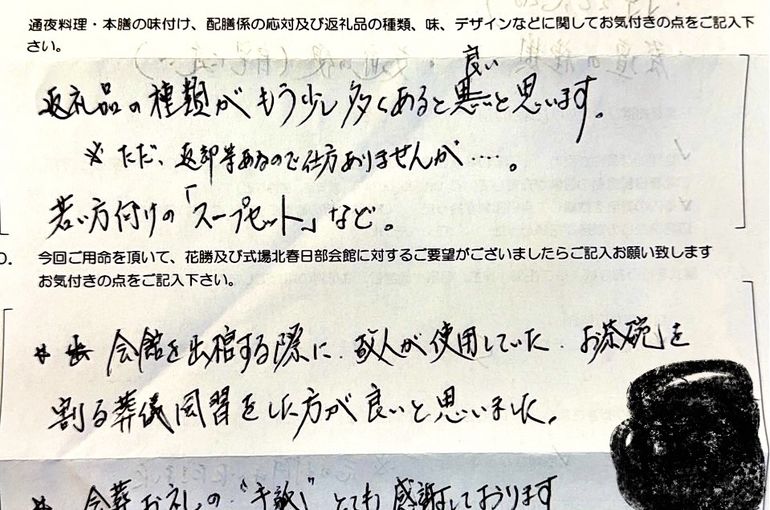 通夜料理・本膳の味付け、配膳係の応対及び返礼品の種類、味、デザインなどに関してお気付きの点をご記入下
さい。
良い
返礼品の種類がもう少し多くあると悪いと思います。
※ ただ、返却等あるので仕方ありませんが‥‥。
若い方付けの「スープセット」など。
0. 今回ご用命を頂いて、花勝及び式場北春日部会館に対するご要望がございましたらご記入お願い致します
お気付きの点をご記入下さい。
会館を出棺する際に、故人が使用していた、お茶碗を
割る葬儀風習をした方が良いと思いました。
会葬お礼の
とても感謝しております